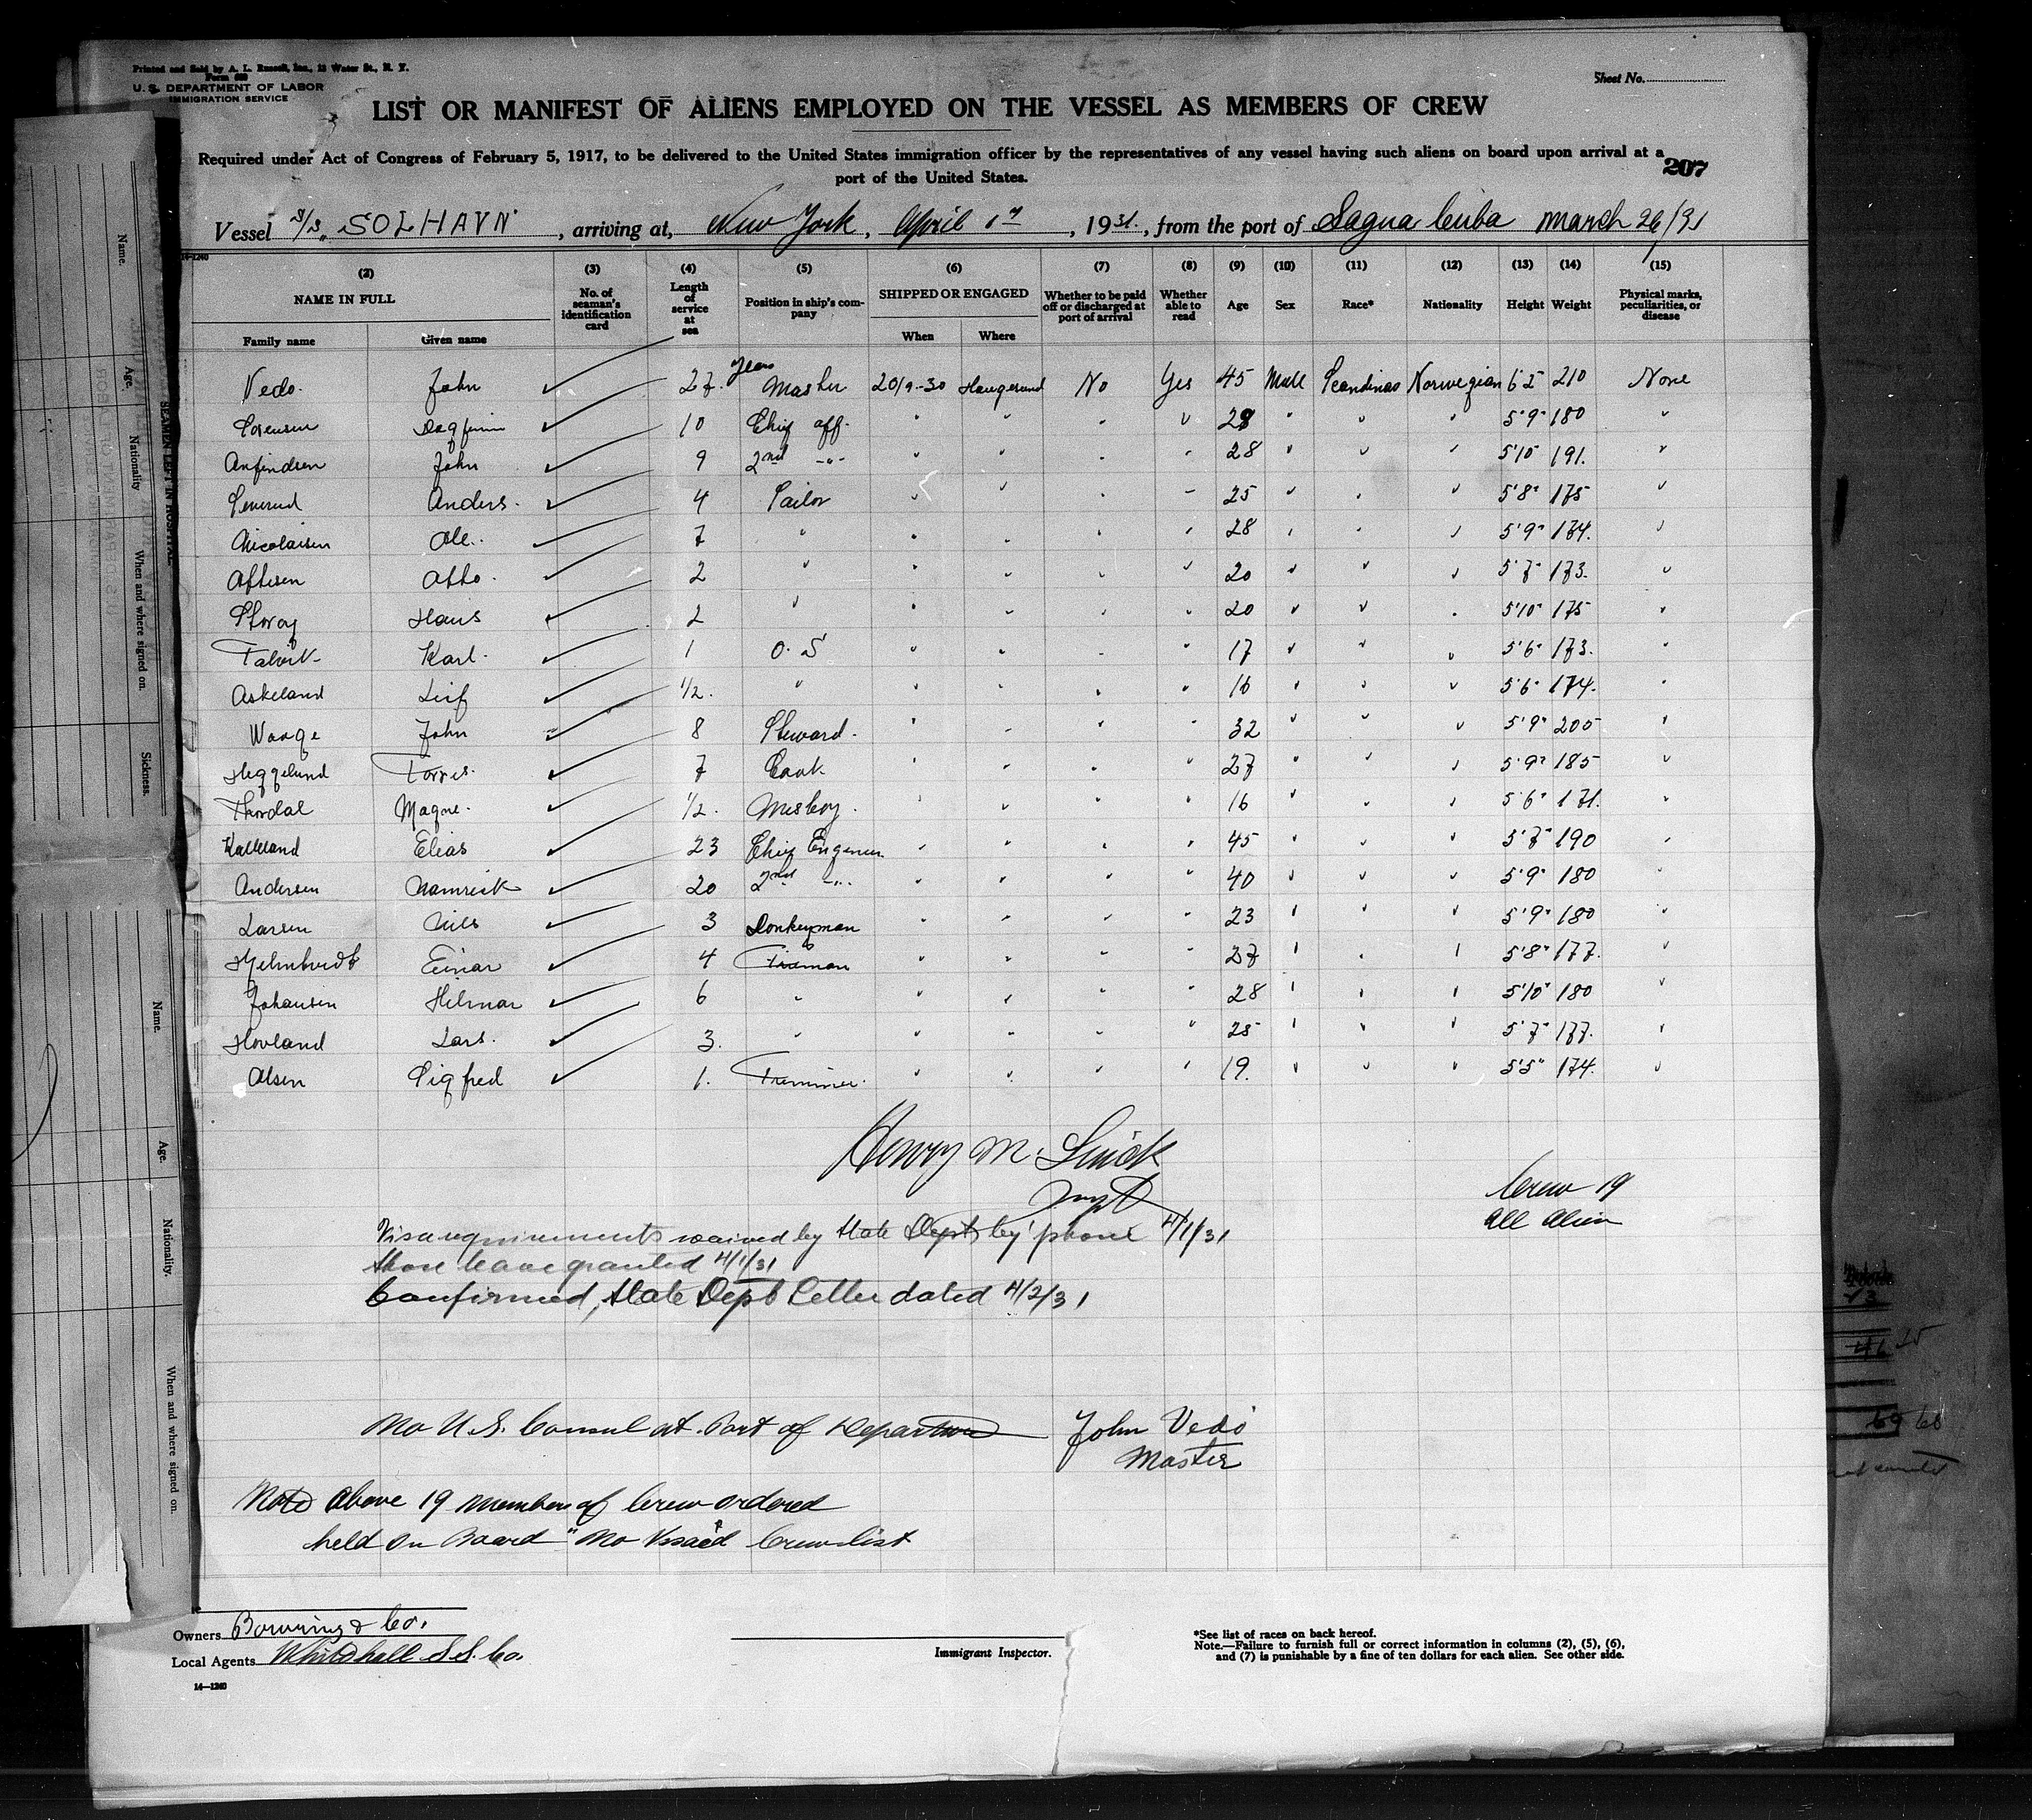 Printed and Sold by A. L. Russell, Inc., 13 Water St., N. Y.
U. S. DEPARTMENT OF LABOR
IMMIGRATION SERVICE
Sheet No.
LIST OR MANIFEST OF ALIENS EMPLOYED ON THE VESSEL AS MEMBERS OF CREW
Required under Act of Congress of February 5, 1917, to be delivered to the United States immigration officer by the representatives of any vessel having such aliens on board upon arrival at a
port of the United States.
207
Vessel S/S "SOLHAVN", arriving at, New York, April 1st, 1931, from the port of Sagua Cuba March 26/31
14-1240
(2) (3) (4) (5) (6) (7) (8) (9) (10) (11) (12) (13) (14) (15)
NAME IN FULL No. of seaman's identification card Length of service at sea Position in ship's company SHIPPED OR ENGAGED Whether to be paid off or discharged at port of arrival Whether able to read Age Sex Race* Nationality Height Weight Physical marks, peculiarities, or disease
Family name Given name When Where
Vedo. John 27. years Master 20/9-30 Haugesund No Yes 45 Male Scandinav Norwegian 210 None
Sorensen Dagfinn 10 Chief off. " " " " " " " 5'9" 180 "
Anfindsen John 9 2nd -"- " " " " 28 " " " 5'10" 191. "
Anders. 4 Sailor " " " " 25 " " " 5'8" 175 "
Nicolaisen Ole. 7 " " " " " 28 " " " 5'9" 174. "
Otto. 2 " " " " " 20 " " " 5'7" 173. "
Hans 2 " " " " " 20 " " " 5'10" 175 "
Karl. 1 O. S " " " " 17 " " " 5'6" 173. "
Askeland Leif 1/2. " " " " " 16 " " " 5'6" 174. "
Waage John 8 Steward. " " " " 32 " " " 5'9" 200 "
Heggelund 7 Cook " " " " 27 " " " 5'9" 185 "
Thordal Magne. 1/2. Messboy. " " " " 16 " " " 5'6" 171. "
Kalleland Elias 23 Chief Engineer " " " " 45 " " " 5'7" 190 "
Andersen 20 2nd -"- " " " " 40 " " " 5'9" 180 "
Larsen Nils 3 Donkeyman " " " " 23 " " " 5'9" 180 "
Einar 4 Fireman " " " " 27 " " " 5'8" 177. "
Johansen Hilmar 6 " " " " " 28 " " " 5'10" 180 "
Hovland Lars. 3. " " " " " 25 " " " 5'7" 177. "
Olsen Sigfred 1. Trimmer. " " " " 19. " " " 5'5" 174. "
Henry M.
Inspt
Crew 19
All Alien
Visa requirements waived by State Dept by 'phone 4/1/31
Shore leave granted 4/1/31
Confirmed, State Dept Letter dated 4/2/31
No U.S. Consul at Port of Departure
John Vedo
Master
Note above 19 members of Crew ordered
held on Board "No Visaed Crewlist
Owners Bowring & Co.
Local Agents Whitehall S.S. Co.
14—1240
Immigrant Inspector.
*See list of races on back hereof.
Note.—Failure to furnish full or correct information in columns (2), (5), (6),
and (7) is punishable by a fine of ten dollars for each alien. See other side.
Name.
Age.
Nationality
When and where signed on.
Sickness.
SEAMEN LEFT IN HOSPITAL
Name.
Age.
Nationality.
When and where signed on.